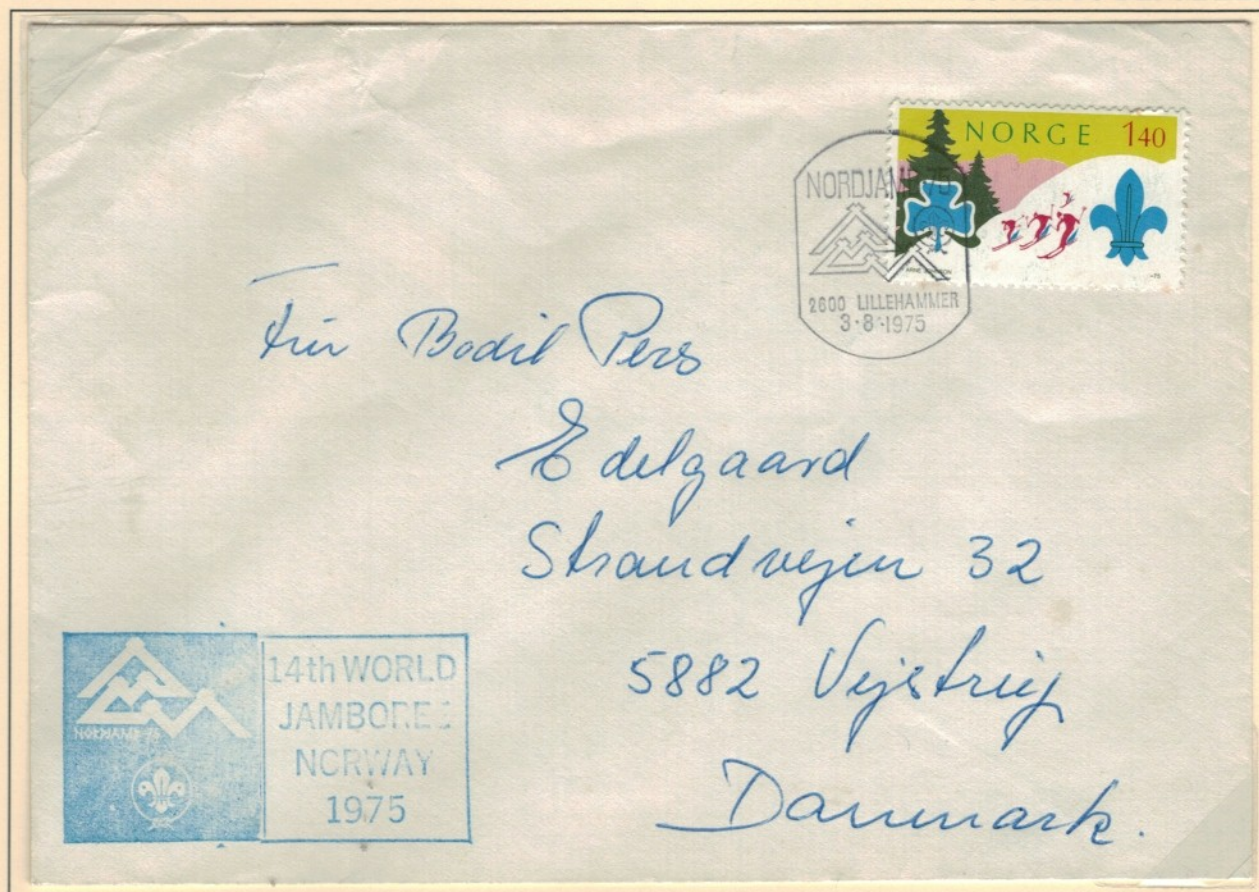 NORGE 140
NORDJAMB 75
2600 LILLEHAMMER
3·8·1975
Bodil Pers
Edelgaard
Strandvejen 32
5882 Vejstrup
Danmark.
NORDJAMB-75
14th WORLD
JAMBOREE
NORWAY
1975